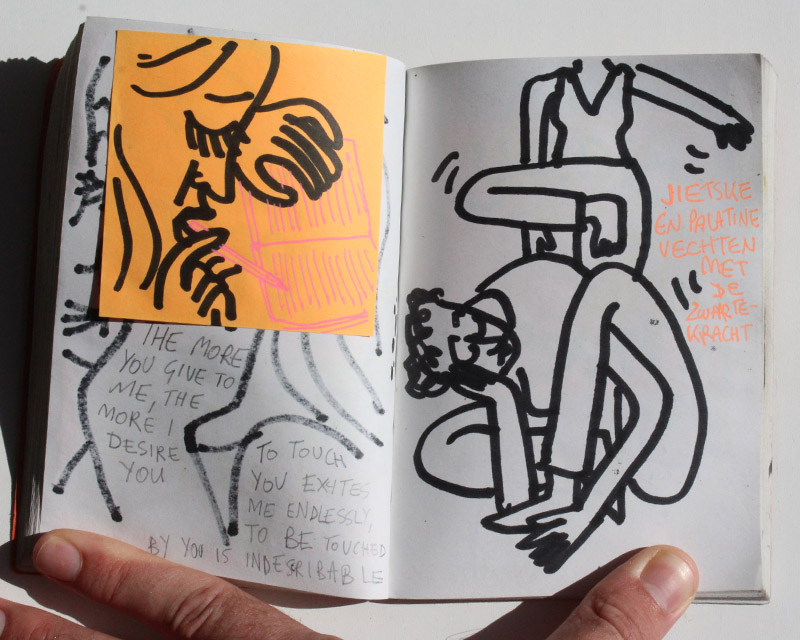 THE MORE
YOU GIVE TO
ME, THE
MORE I
DESIRE
YOU
TO TOUCH
YOU EXITES
ME ENDLESSLY,
TO BE TOUCHED
BY YOU IS INDESRIBABLE
JIETSKE
EN PALATINE
VECHTEN
MET
DE
ZWARTE-
KRACHT